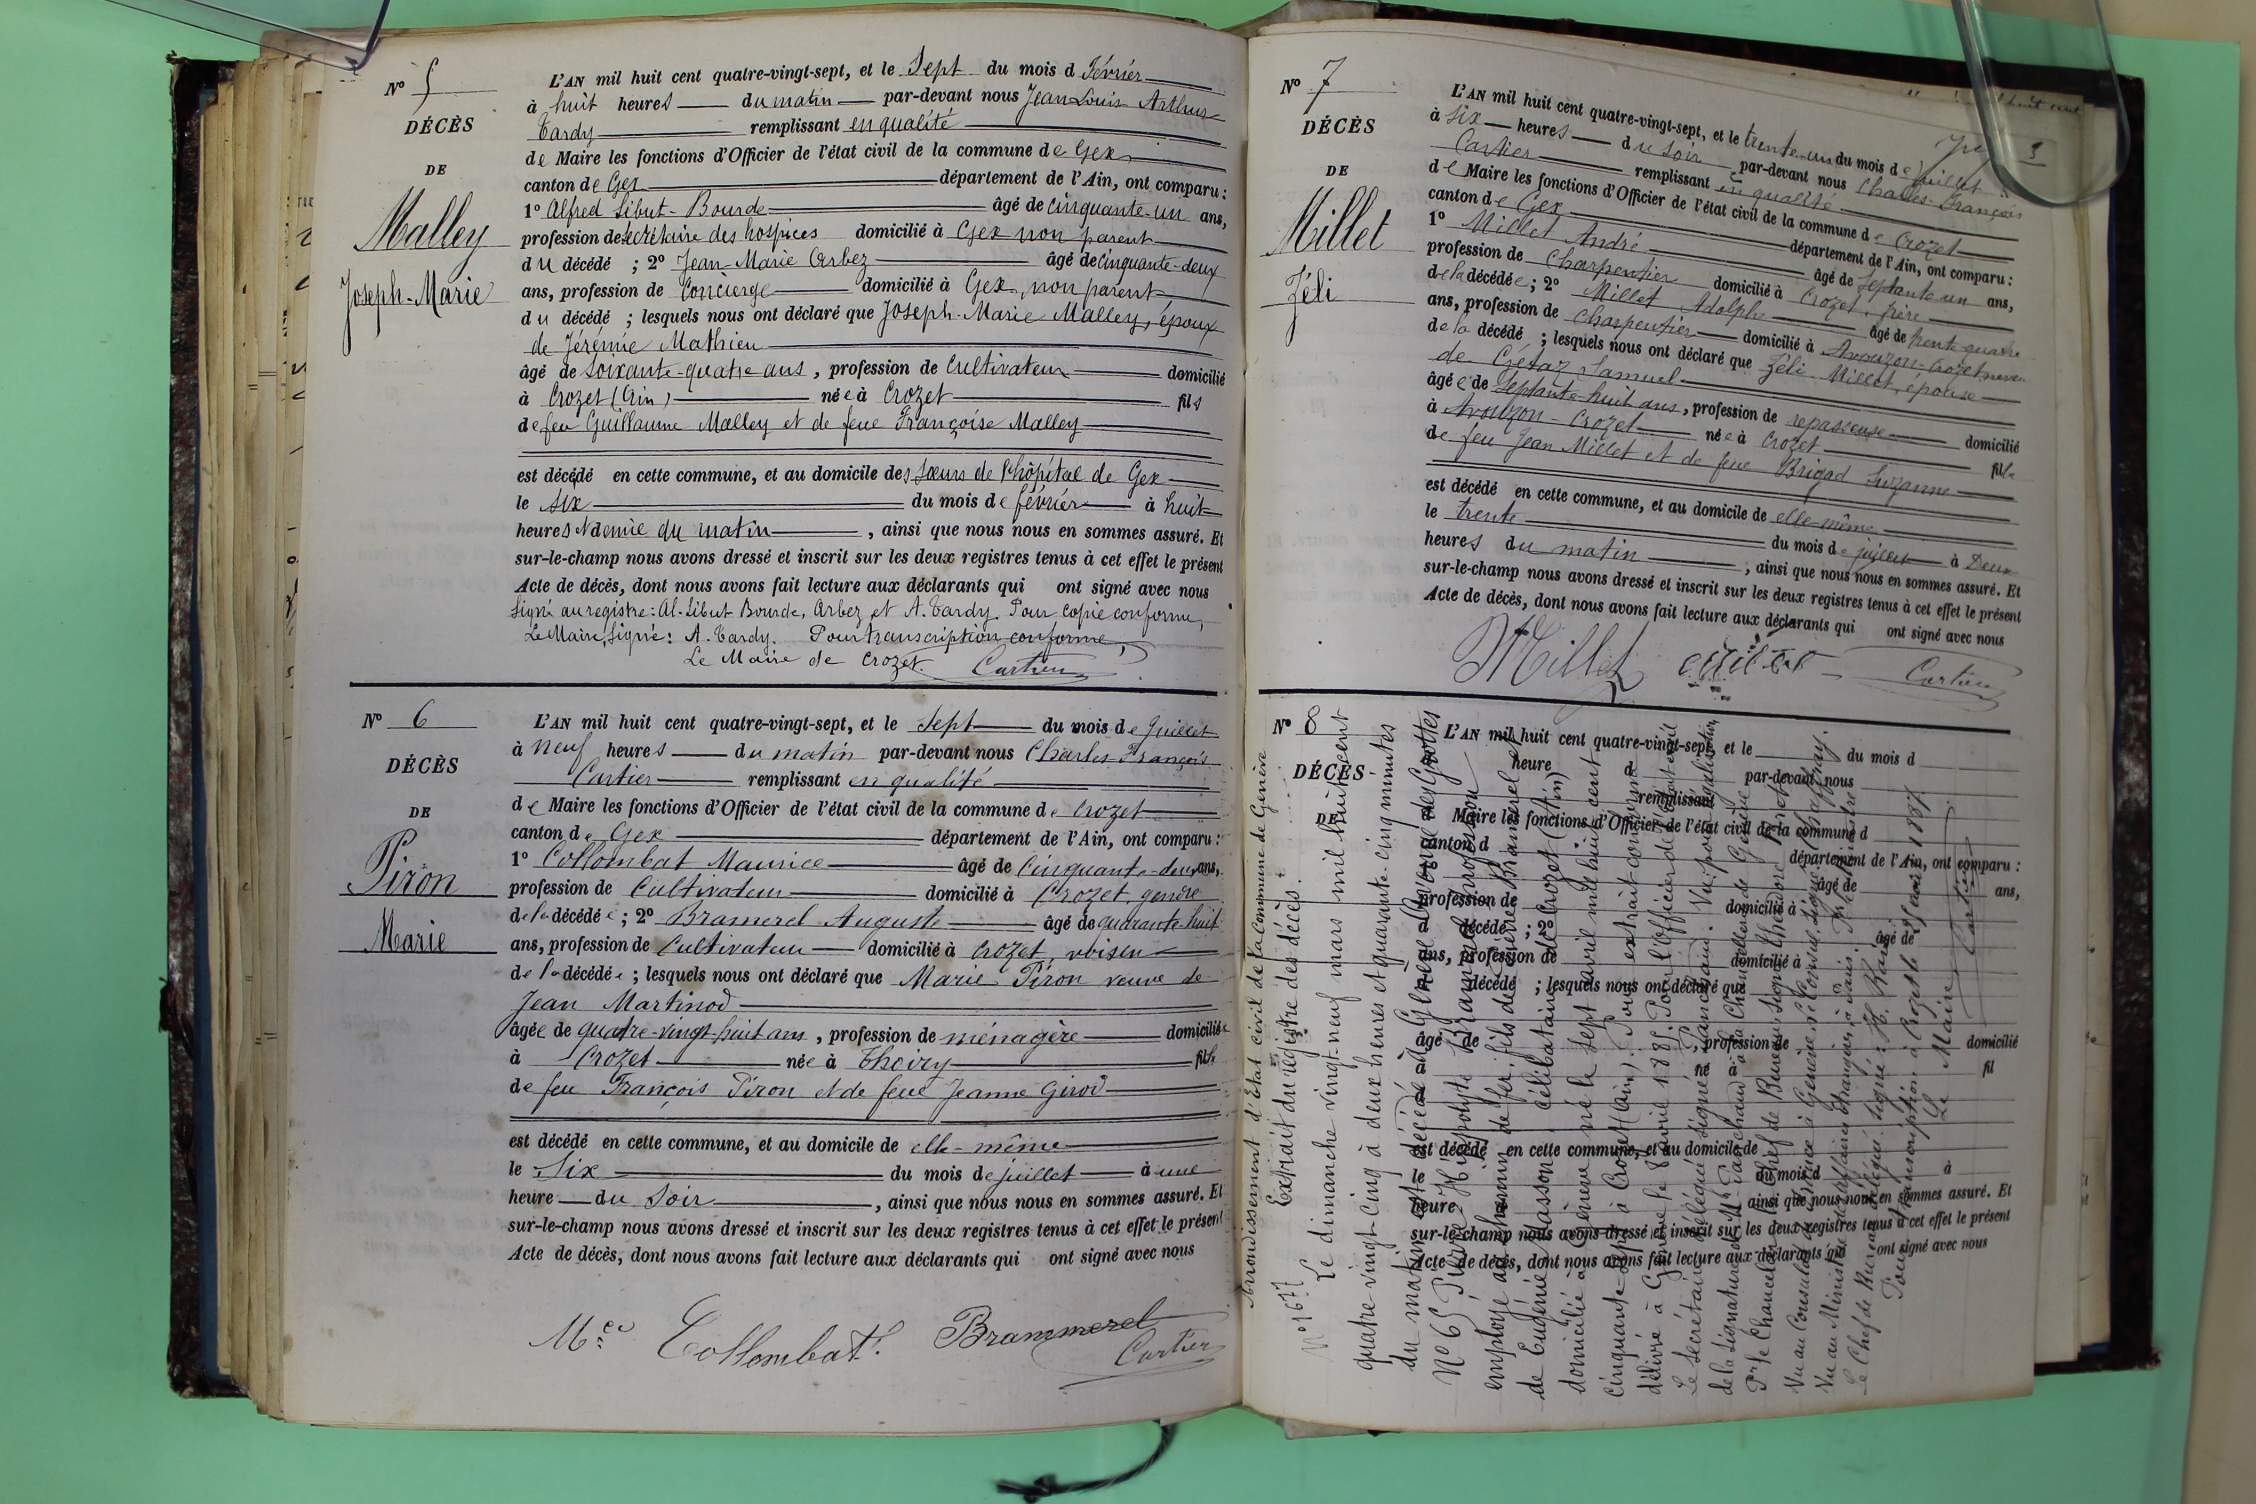 N° 5
DÉCÈS
DE
Malley
Joseph-Marie
L'AN mil huit cent quatre-vingt-sept, et le Sept du mois d Février
à huit heures du matin par-devant nous Jean Louis Arthur
Tardy remplissant en qualité
de Maire les fonctions d'Officier de l'état civil de la commune de Gex
canton de Gex département de l'Ain, ont comparu :
1° Alfred Sibut-Bourde âgé de cinquante-un ans,
profession de secrétaire des hospices domicilié à Gex non parent
du décédé ; 2° Jean-Marie Arbez âgé de cinquante-deux
ans, profession de Concierge domicilié à Gex, non parent
du décédé ; lesquels nous ont déclaré que Joseph-Marie Malley, époux
de Jérémie Mathieu
âgé de soixante-quatre ans, profession de Cultivateur domicilié
à Crozet (Ain) née à Crozet fils
de feu Guillaume Malley et de feue Françoise Malley
est décédé en cette commune, et au domicile des sœurs de l'hôpital de Gex
le six du mois de février à huit
heures et demie du matin, ainsi que nous nous en sommes assuré. Et
sur-le-champ nous avons dressé et inscrit sur les deux registres tenus à cet effet le présent
Acte de décès, dont nous avons fait lecture aux déclarants qui ont signé avec nous
Signé au registre : Al. Sibut Bourde, Arbez et A. Tardy. Pour copie conforme,
Le Maire, signé : A. Tardy. Pour transcription conforme,
Le Maire de Crozet. Cartier
N° 6
DÉCÈS
DE
Piron
Marie
L'AN mil huit cent quatre-vingt-sept, et le Sept du mois de Juillet
à neuf heures du matin par-devant nous Charles-François
Cartier remplissant en qualité
de Maire les fonctions d'Officier de l'état civil de la commune de Crozet
canton de Gex département de l'Ain, ont comparu :
1° Collombat Maurice âgé de cinquante-deux ans,
profession de Cultivateur domicilié à Crozet, gendre
de la décédée ; 2° Bramerel Auguste âgé de quarante-huit
ans, profession de Cultivateur domicilié à Crozet, voisin
de la décédée ; lesquels nous ont déclaré que Marie Piron veuve de
Jean Martinod
âgée de quatre-vingt-huit ans, profession de ménagère domiciliée
à Crozet née à Thoiry fille
de feu François Piron et de feue Jeanne Girod
est décédé en cette commune, et au domicile de elle-même
le Six du mois de juillet à une
heure du soir, ainsi que nous nous en sommes assuré. Et
sur-le-champ nous avons dressé et inscrit sur les deux registres tenus à cet effet le présent
Acte de décès, dont nous avons fait lecture aux déclarants qui ont signé avec nous
Mce Collombat. Brammerel
Cartier
3
N° 7
DÉCÈS
DE
Millet
Zéli
L'AN mil huit cent quatre-vingt-sept, et le trente-un du mois de juillet
à six heures du soir par-devant nous Charles-François
Cartier remplissant en qualité
de Maire les fonctions d'Officier de l'état civil de la commune de Crozet
canton de Gex département de l'Ain, ont comparu :
1° Millet André âgé de septante un ans,
profession de Charpentier domicilié à Crozet, frère
de la décédée ; 2° Millet Adolphe âgé de trente-quatre
ans, profession de charpentier domicilié à Avouzon-Crozet neveu
de la décédé ; lesquels nous ont déclaré que Zéli Millet, épouse
de Crétaz Samuel
âgée de septante-huit ans, profession de repasseuse domicilié
à Avouzon-Crozet née à Crozet fille
de feu Jean Millet et de feue Brigad Suzanne
est décédé en cette commune, et au domicile de elle-même
le trente du mois de juillet à Deux
heures du matin, ainsi que nous nous en sommes assuré. Et
sur-le-champ nous avons dressé et inscrit sur les deux registres tenus à cet effet le présent
Acte de décès, dont nous avons fait lecture aux déclarants qui ont signé avec nous
Millet Cartier
N° 8
DÉCÈS
DE
L'AN mil huit cent quatre-vingt-sept, et le du mois d
heure d par-devant nous
remplissant
Maire les fonctions d'Officier de l'état civil de la commune d
canton d département de l'Ain, ont comparu :
âgé de ans,
profession de domicilié à
décédé ; 2° âgé de
ans, profession de domicilié à
décédé ; lesquels nous ont déclaré que
âgé de , profession de domicilié
né à fil
est décédé en cette commune, et au domicile de
le du mois d à
heure ainsi que nous nous en sommes assuré. Et
sur-le-champ nous avons dressé et inscrit sur les deux registres tenus à cet effet le présent
Acte de décès, dont nous avons fait lecture aux déclarants qui ont signé avec nous
Arrondissement d'Etat civil de la Commune de Genève
Extrait du registre des décès.
N° 1677
Le dimanche vingt-neuf mars mil huit cent
quatre vingt-cinq à deux heures et quarante-cinq minutes
du matin est décédé à Genève
N° 65 Pierre Hippolyte Bramerel profession
employé au chemin de fer, fils de Pierre Bramerel et
de Eugénie Masson, célibataire de Crozet (Ain)
domicilié à Genève né le sept avril mil huit cent
cinquante-sept à Crozet (Ain). Pour extrait conforme
délivré à Genève le 8 avril 1885. Pour l'Officier de l'état civil
Le secrétaire délégué signé Panchaud. Vu pour légalisation
de la signature de Mr Panchaud à la Chancellerie de Genève
Pr le Chancelier, le Chef de Bureau signé Théodore
Vu au Consulat de France à Genève, le Consul, signé
Vu au Ministère des affaires étrangères, à Paris. Pr le Ministre
Le Chef de Bureau délégué signé :
Pour transcription à Crozet le 1887
Le Maire, Cartier